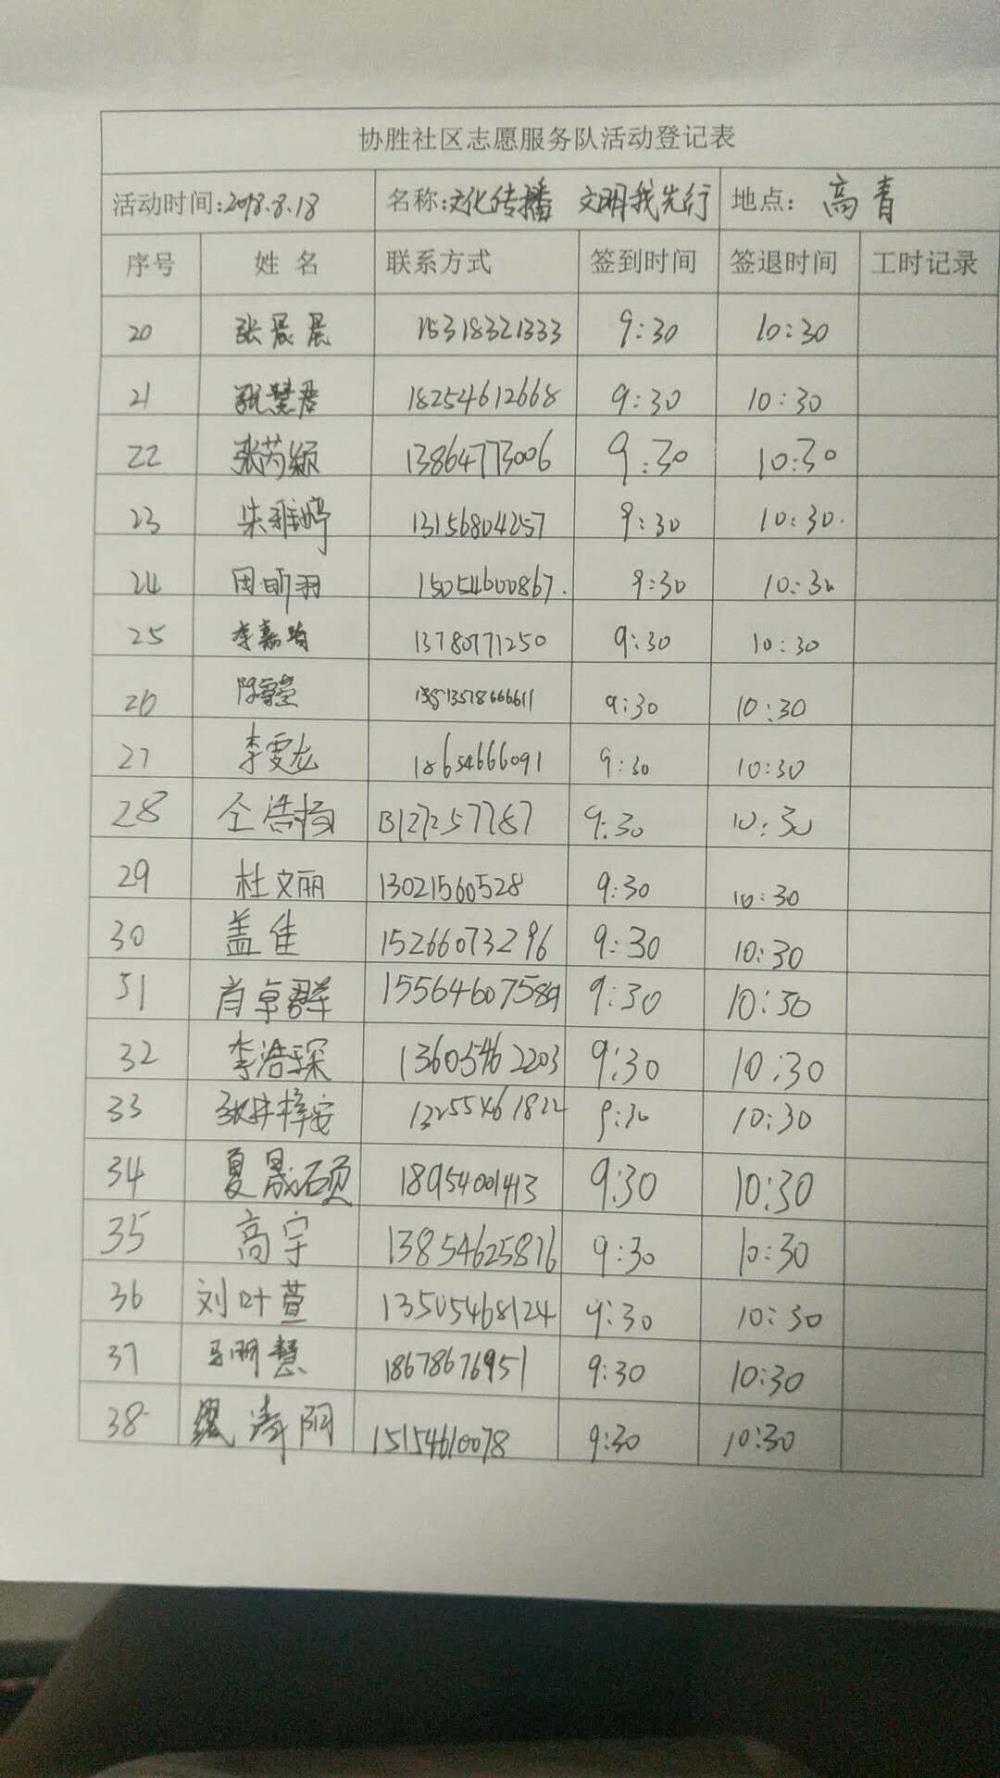 协胜社区志愿服务队活动登记表
活动时间:2018.8.18 名称:文化传播 文明我先行 地点: 高青
序号 姓名 联系方式 签到时间 签退时间 工时记录
20 张晨晨 15318321333 9:30 10:30
21 张慧君 18254612668 9:30 10:30
22 张芮颖 13864773006 9:30 10:30
23 朱雅婷 13156804257 9:30 10:30.
24 周昕羽 15054600867. 9:30 10:30
25 李嘉 13780771250 9:30 10:30
26 9:30 10:30
27 李雯龙 18654666091 9:30 10:30
28 仝浩 9:30 10:30
29 杜文丽 13021560528 9:30 10:30
30 盖佳 15266073296 9:30 10:30
31 肖卓群 9:30 10:30
32 李浩琛 13605462203 9:30 10:30
33 梓安 13255461822 9:30 10:30
34 夏晟硕 18954001413 9:30 10:30
35 高宇 13854625876 9:30 10:30
36 刘叶萱 13505468124 9:30 10:30
37 明慧 18678676951 9:30 10:30
38 涛阳 15154610078 9:30 10:30